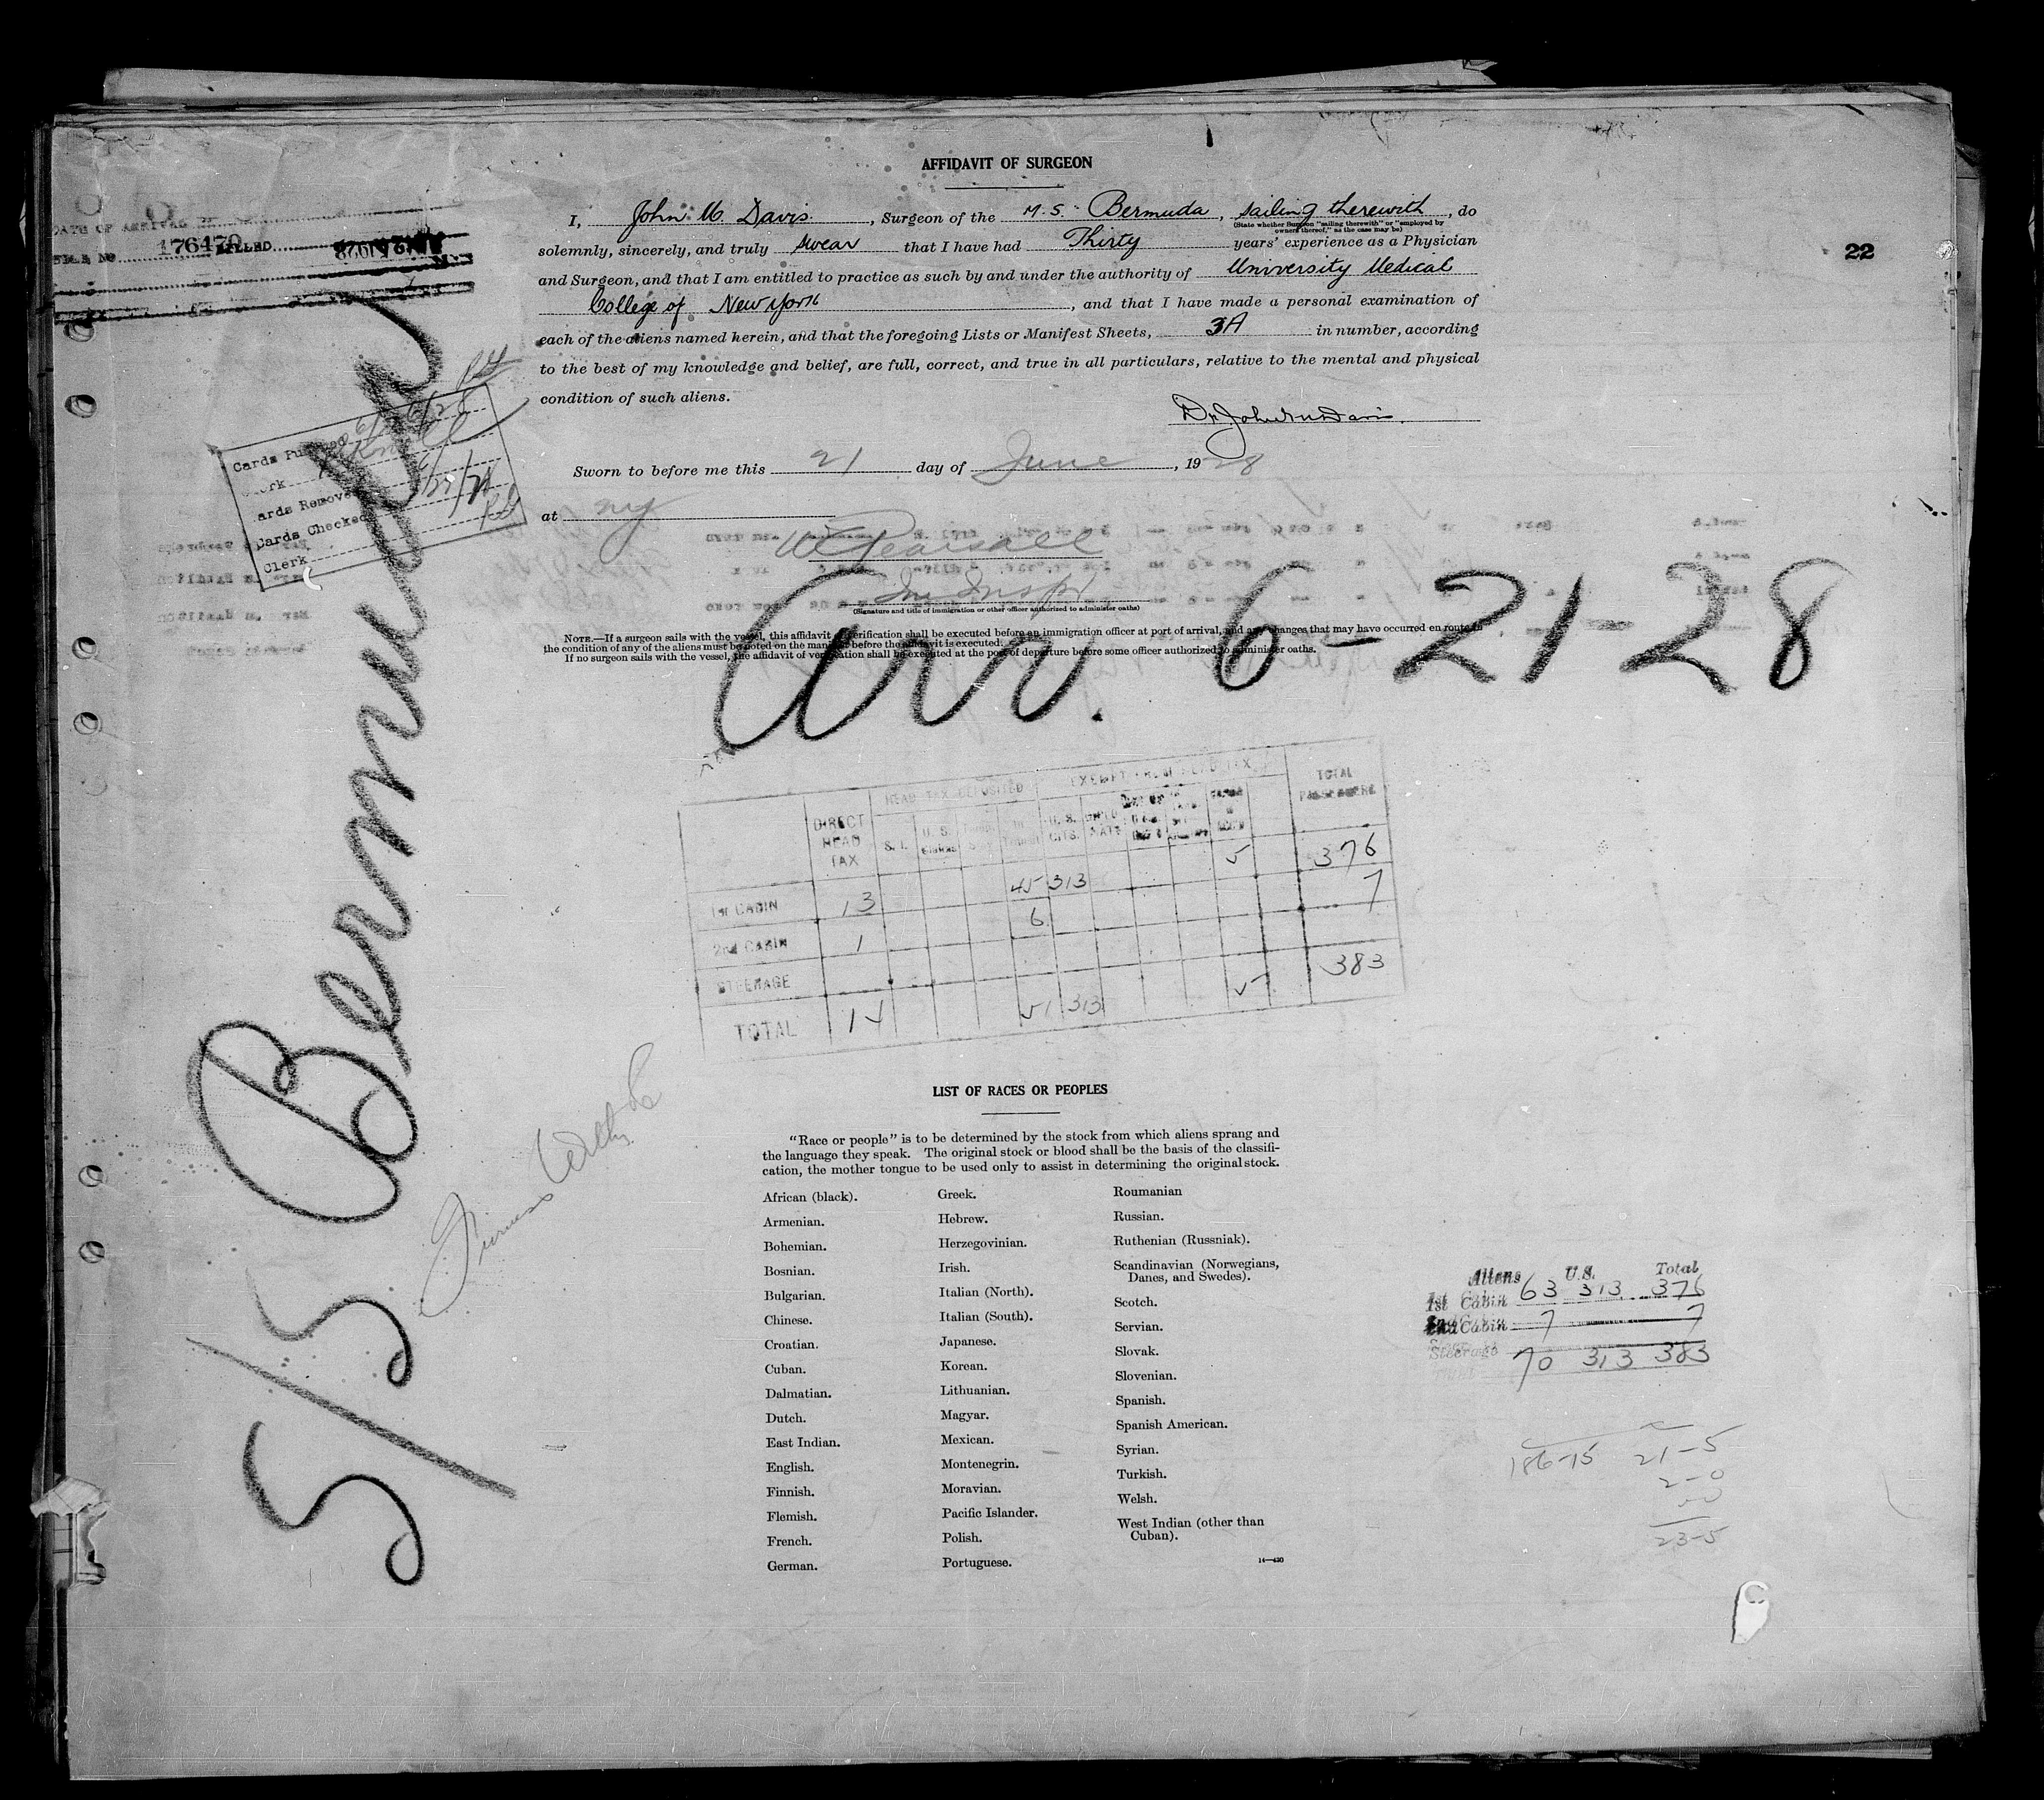 AFFIDAVIT OF SURGEON
I, John M. Davis, Surgeon of the M.S. Bermuda, sailing therewith, do
(State whether Surgeon "sailing therewith" or "employed by
owners thereof," as the case may be)
solemnly, sincerely, and truly swear that I have had Thirty years' experience as a Physician
and Surgeon, and that I am entitled to practice as such by and under the authority of University Medical
College of New York, and that I have made a personal examination of
each of the aliens named herein, and that the foregoing Lists or Manifest Sheets, 3A in number, according
to the best of my knowledge and belief, are full, correct, and true in all particulars, relative to the mental and physical
condition of such aliens.
Dr John M Davis.
Sworn to before me this 21 day of June, 1928
at ny
WE Pearsall
Im Inspr
(Signature and title of immigration or other officer authorized to administer oaths)
NOTE.—If a surgeon sails with the vessel, this affidavit verification shall be executed before an immigration officer at port of arrival, and any changes that may have occurred en route in
the condition of any of the aliens must be noted on the manifest before the affidavit is executed.
If no surgeon sails with the vessel, the affidavit of verification shall be executed at the port of departure before some officer authorized to administer oaths.
22
DATE OF ARRIVAL
176470 FILLED
Cards Pu
Clerk
Cards Removed
Cards Checked
Clerk
S/S Bermuda
Arr. 6-21-28
Furness Withy
HEAD TAX DEPOSITED EXEMPT FROM HEAD TAX TOTAL PASSENGERS
DIRECT HEAD TAX S. I. U. S. In Transit U. S. CITS.
1st CABIN 13 45 313 5 376
2nd CABIN 1 6 7
STEERAGE
TOTAL 14 51 313 5 383
LIST OF RACES OR PEOPLES
"Race or people" is to be determined by the stock from which aliens sprang and
the language they speak. The original stock or blood shall be the basis of the classifi-
cation, the mother tongue to be used only to assist in determining the original stock.
African (black).
Armenian.
Bohemian.
Bosnian.
Bulgarian.
Chinese.
Croatian.
Cuban.
Dalmatian.
Dutch.
East Indian.
English.
Finnish.
Flemish.
French.
German.
Greek.
Hebrew.
Herzegovinian.
Irish.
Italian (North).
Italian (South).
Japanese.
Korean.
Lithuanian.
Magyar.
Mexican.
Montenegrin.
Moravian.
Pacific Islander.
Polish.
Portuguese.
Roumanian
Russian.
Ruthenian (Russniak).
Scandinavian (Norwegians,
Danes, and Swedes).
Scotch.
Servian.
Slovak.
Slovenian.
Spanish.
Spanish American.
Syrian.
Turkish.
Welsh.
West Indian (other than
Cuban).
14—430
Aliens U.S. Total
1st Cabin 63 313 376
2nd Cabin 7 7
Steerage 70 313 383
186-15 21-5
2-0
23-5